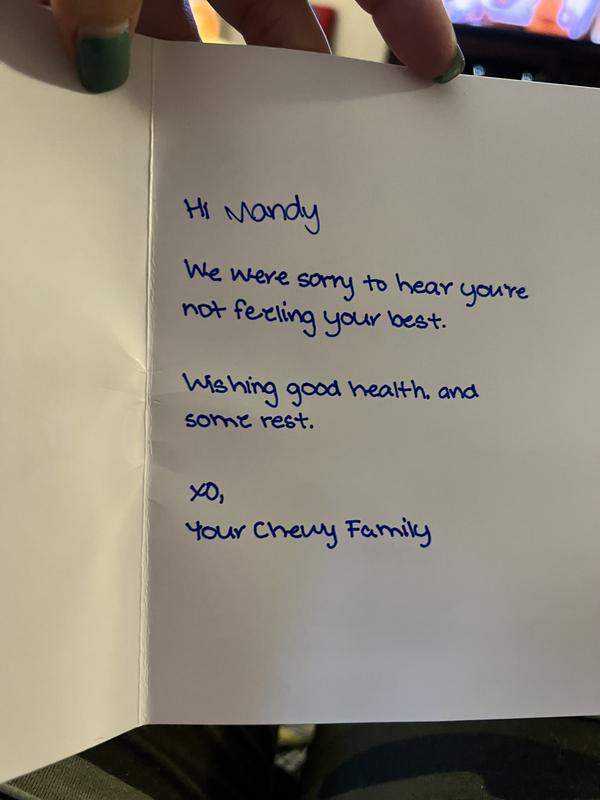 Hi Mandy
We were sorry to hear you're
not feeling your best.
Wishing good health, and
some rest.
xo,
Your Chewy Family